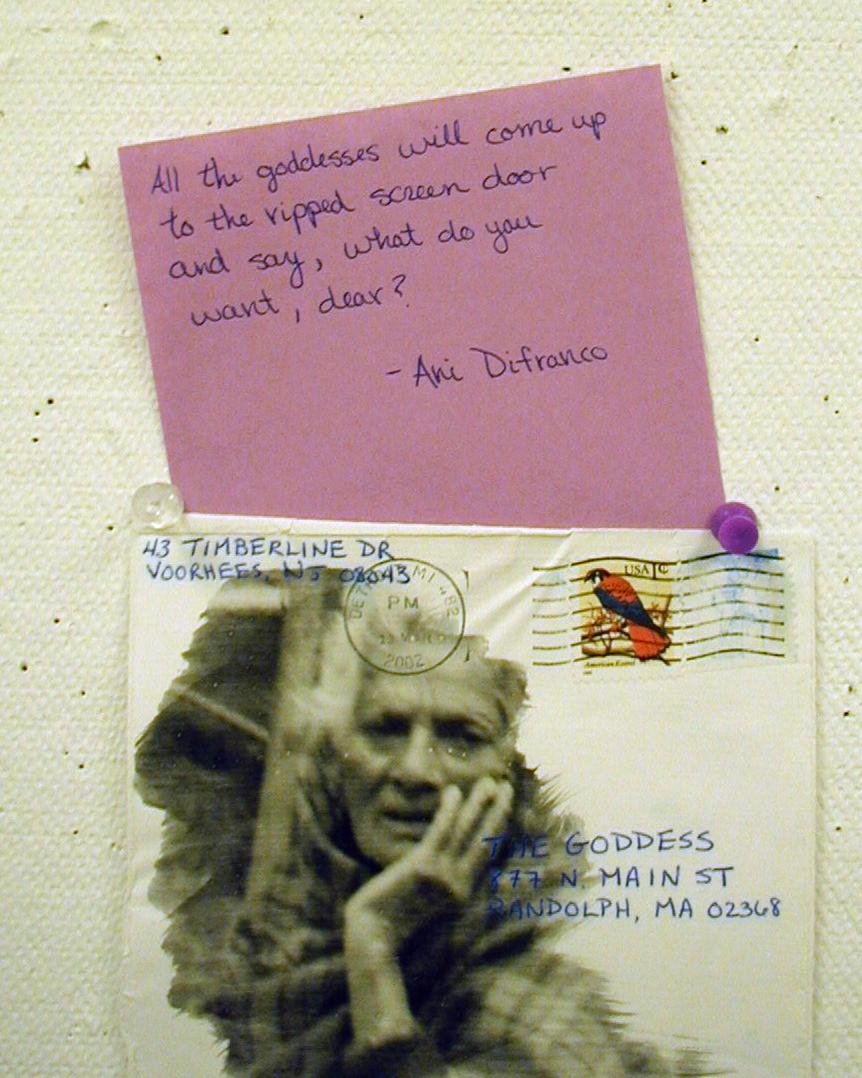 All the goddesses will come up
to the ripped screen door
and say, what do you
want, dear?
- Ani Difranco
43 TIMBERLINE DR
VOORHEES, NJ 08043
MI 482
PM
2002
USA 1¢
American Kestrel
THE GODDESS
877 N. MAIN ST
RANDOLPH, MA 02368